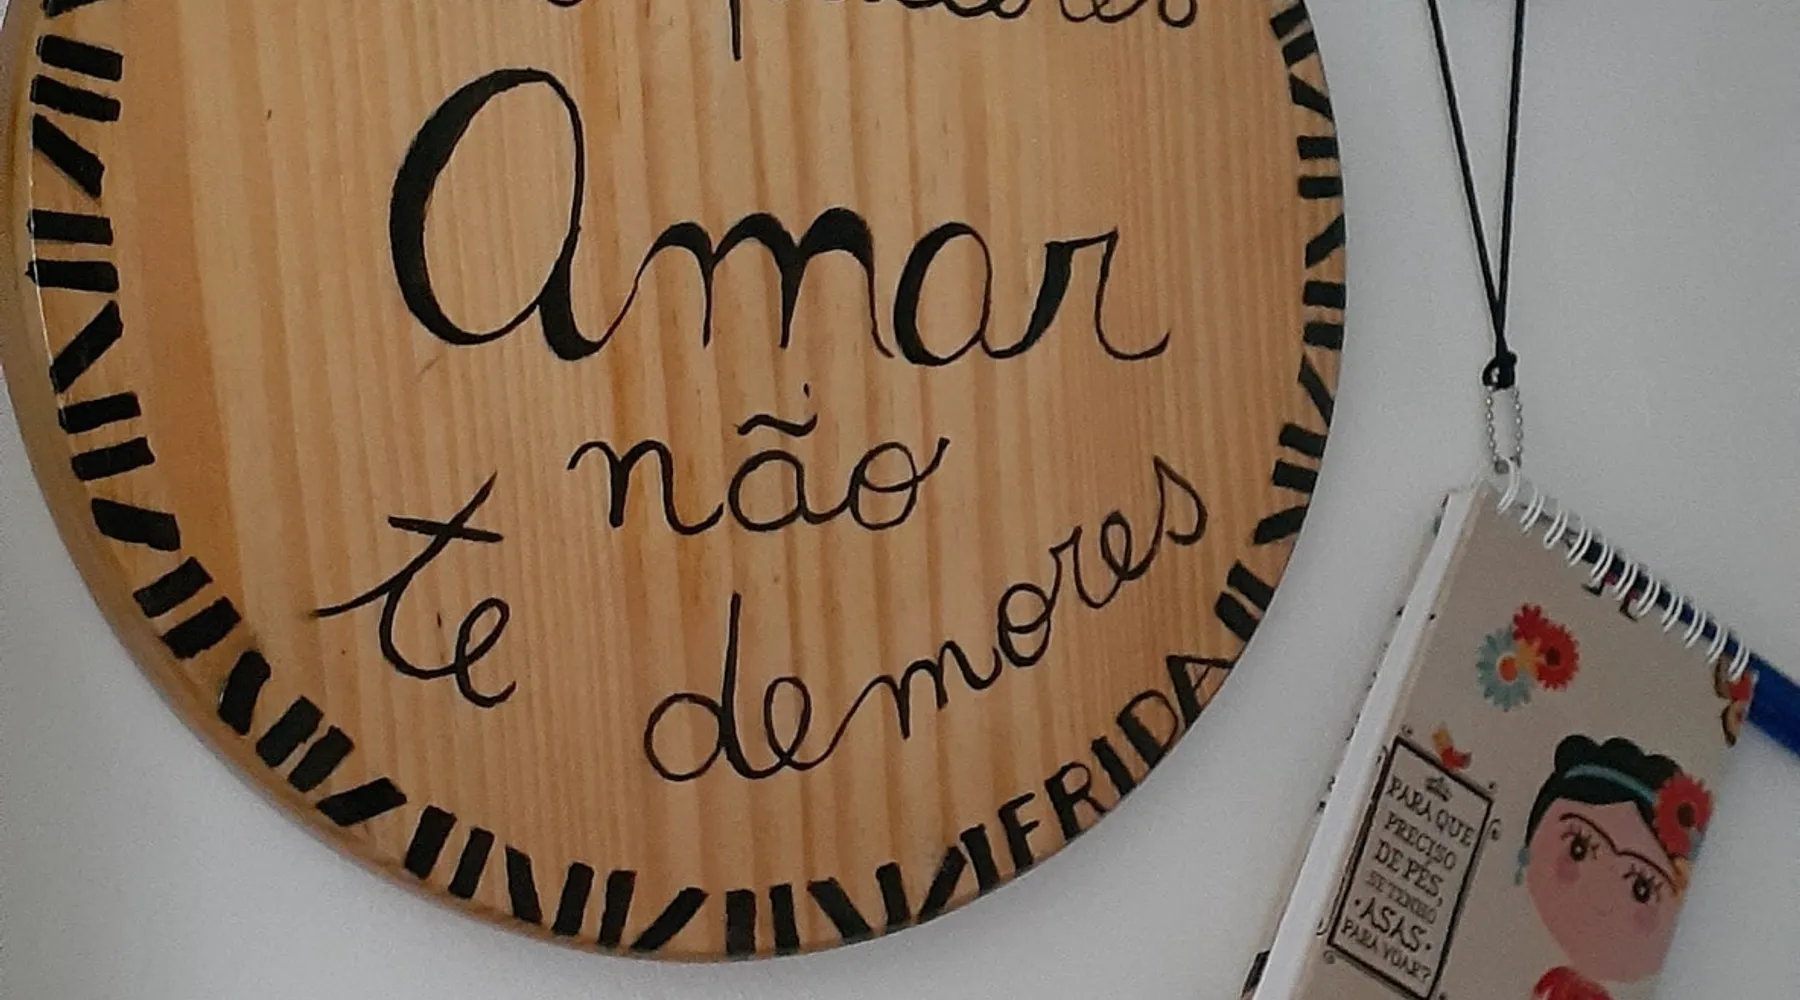 Amar
não
te demores
FRIDA
PARA QUE
PRECISO
DE PÉS,
SE TENHO
·ASAS·
PARA VOAR?